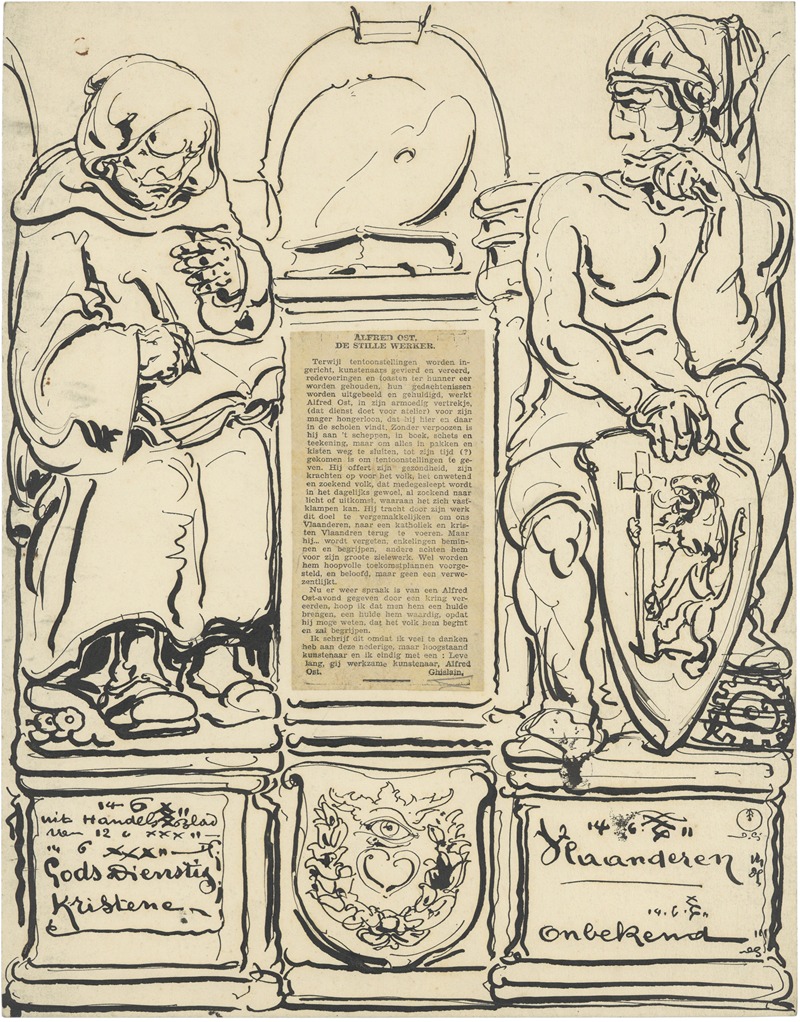 ALFRED OST,
DE STILLE WERKER.
Terwijl tentoonstellingen worden in-
gericht, kunstenaars gevierd en vereerd,
redevoeringen en toasten ter hunner eer
worden gehouden, hun gedachtenissen
worden uitgebeeld en gehuldigd, werkt
Alfred Ost, in zijn armoedig vertrekje,
(dat dienst doet voor atelier) voor zijn
mager hongerloon, dat hij hier en daar
in de scholen vindt, Zonder verpoozen is
hij aan 't scheppen, in boek, schets en
teekening, maar om alles in pakken en
kisten weg te sluiten, tot zijn tijd (?)
gekomen is om tentoonstellingen te ge-
ven. Hij offert zijn gezondheid, zijn
krachten op voor het volk, het onwetend
en zoekend volk, dat medegesleept wordt
in het dagelijks gewoel, al zoekend naar
licht of uitkomst, waaraan het zich vast-
klampen kan. Hij tracht door zijn werk
dit doel te vergemakkelijken om ons
Vlaanderen, naar een katholiek en kris-
ten Vlaandren terug te voeren. Maar
hij... wordt vergeten; enkelingen bemin-
nen en begrijpen, andere achten hem
voor zijn groote zielewerk. Wel worden
hem hoopvolle toekomstplannen voorge-
steld, en beloofd, maar geen een verwe-
zentlijkt.
Nu er weer spraak is van een Alfred
Ost-avond gegeven door een kring ver-
eerden, hoop ik dat men hem een hulde
brengen, een hulde hem waardig, opdat
hij moge weten, dat het volk hem begint
en zal begrijpen.
Ik schrijf dit omdat ik veel te danken
heb aan deze nederige, maar hoogstaand
kunstenaar en ik eindig met een : Leve
lang, gij werkzame kunstenaar, Alfred
Ost. Ghislain,
14 6 X
uit Handelsblad
van 12 6 XXX
14 6 XXX
Gods Dienstig
Kristene
14 6
Vlaanderen
14.6.
onbekend